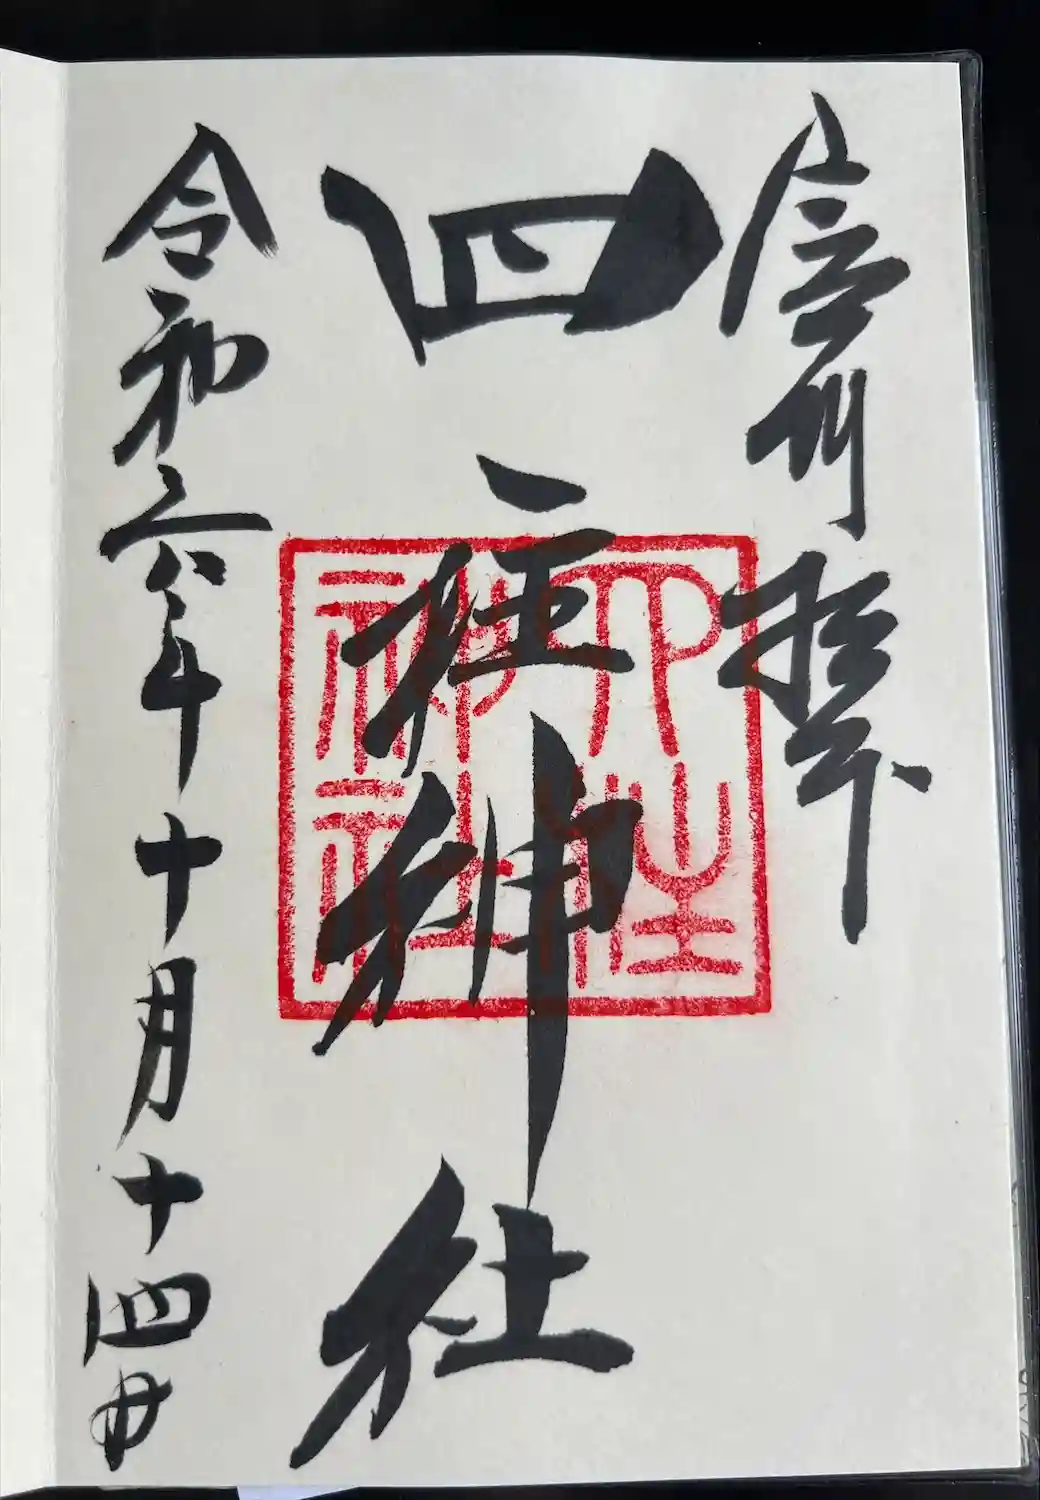 信州 拝
四柱神社
四柱神社
令和六年十月十四日